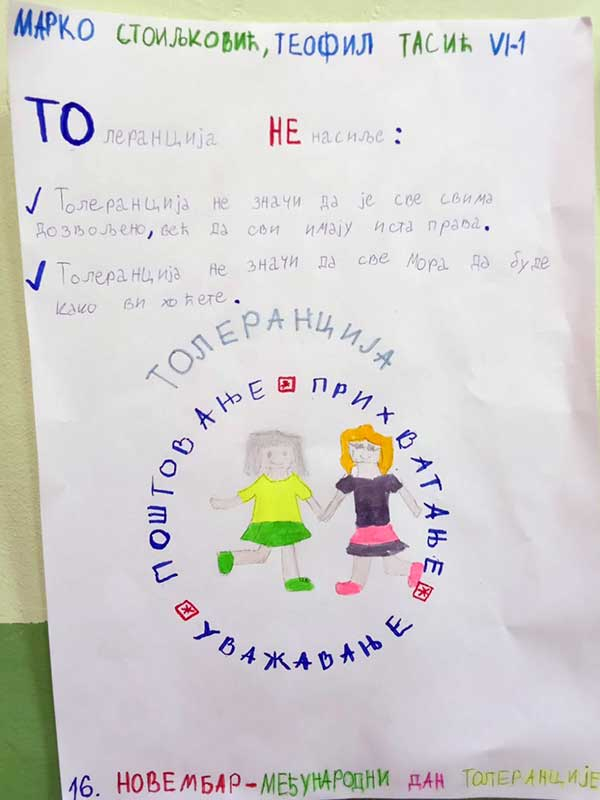 МАРКО СТОИЉКОВИЋ, ТЕОФИЛ ТАСИЋ VI-1
ТОлеранција НЕнасиље:
✓ Толеранција не значи да је све свима
дозвољено, већ да сви имају иста права.
✓ Толеранција не значи да све мора да буде
како ви хоћете.
ТОЛЕРАНЦИЈА
ПОШТОВАЊЕ
ПРИХВАТАЊЕ
УВАЖАВАЊЕ
16. НОВЕМБАР-МЕЂУНАРОДНИ ДАН ТОЛЕРАНЦИЈЕ